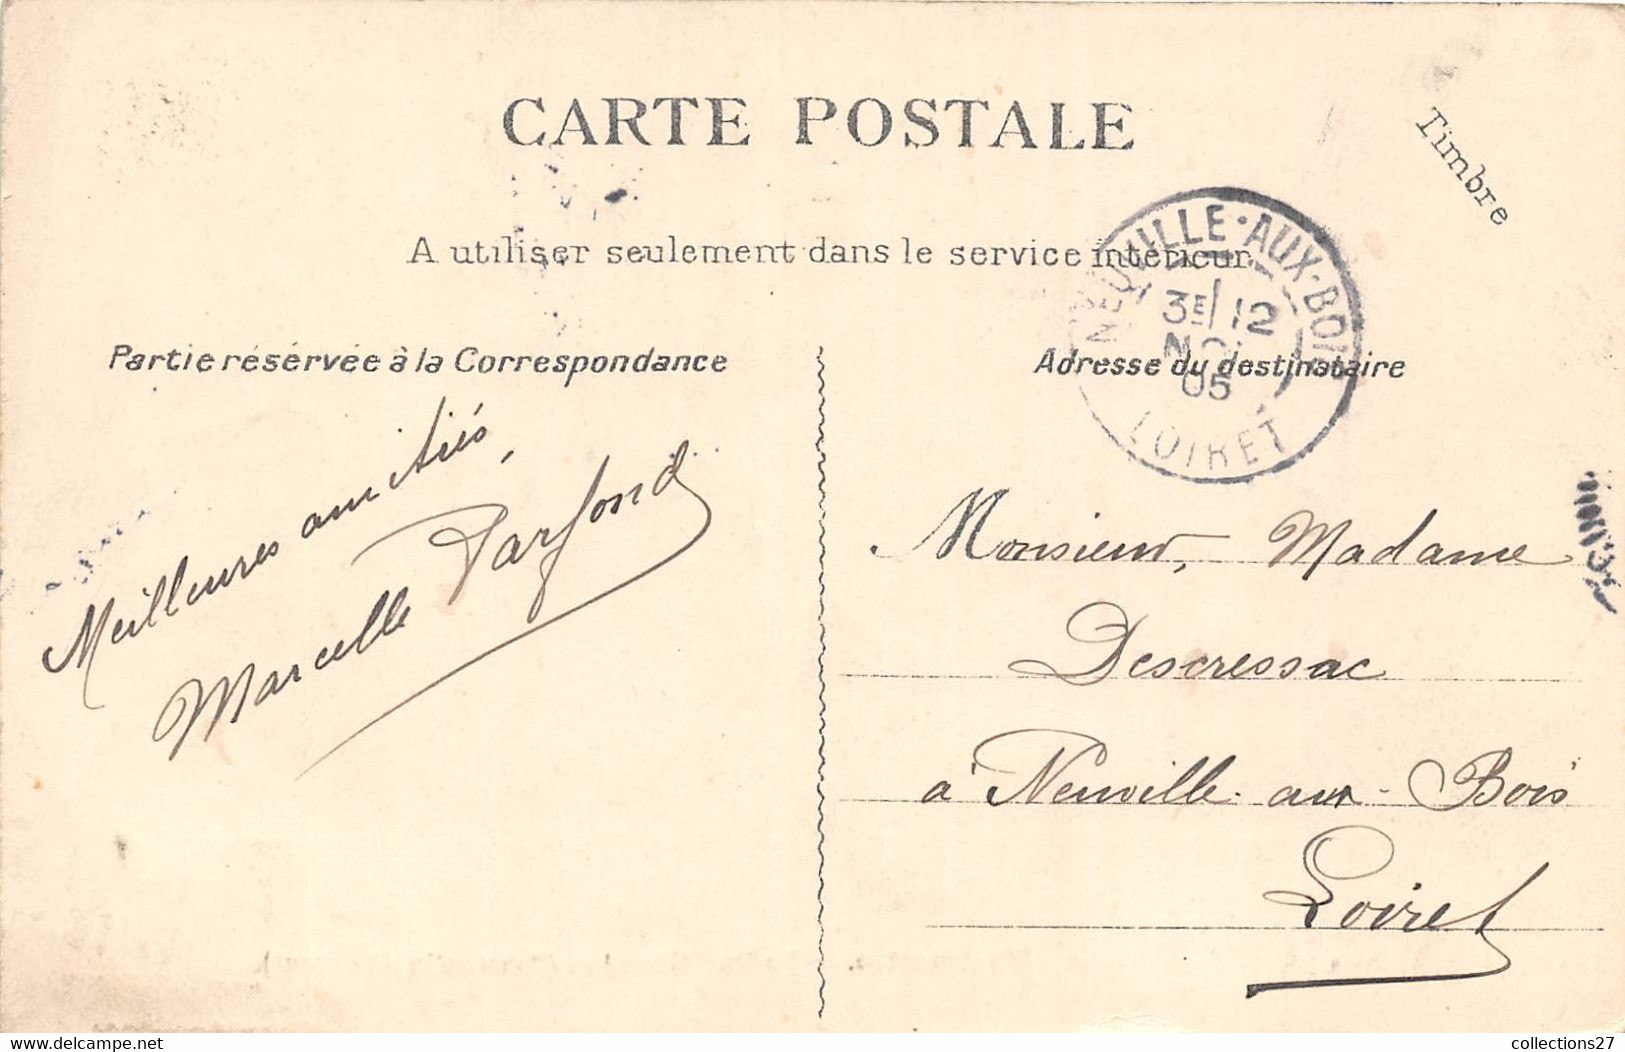 CARTE POSTALE
Timbre
A utiliser seulement dans le service intérieur
NEUVILLE-AUX-BOIS
3E/12
05
LOIRET
Partie résérvée à la Correspondance
Adresse du destinataire
Meilleures amitiés,
Marcelle Parfond
Monsieur, Madame
Descressac
à Neuville-aux-Bois
Loiret
collections27